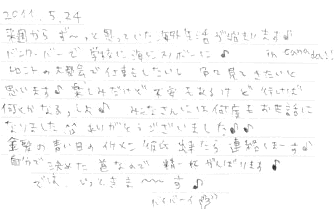 2011.5.24
来週からずーっと思っていた海外生活が始まります♪
バンクーバーで学校に通いスノボーに♪ in Canada!!
トロントの大都会で仕事をしたいし 色々見てきたいと
思います♪ 楽しみだけど不安もあるけど 行けば
何とかなるっしょ♪ みなさんには何度もお世話に
なりました ありがとうございました♪♪
金髪の青い目のイケメン彼氏 出来たら連絡しまーす♪
自分で決めた道なので 精一杯がんばります♪
では、いってきま〜〜す♪
バイバーイ